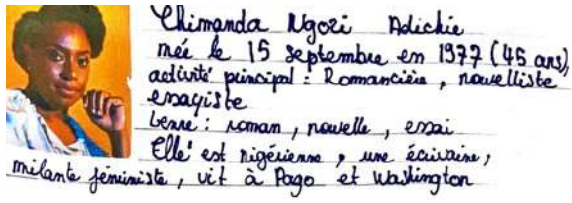 Chimanda Ngozi Adichie
née le 15 septembre en 1977 (45 ans),
activité principal : Romancière, nouvelliste
essayiste
Genre : roman, nouvelle, essai
Elle est nigérienne, une écrivaine,
milante féministe, vit à Pago et Washington